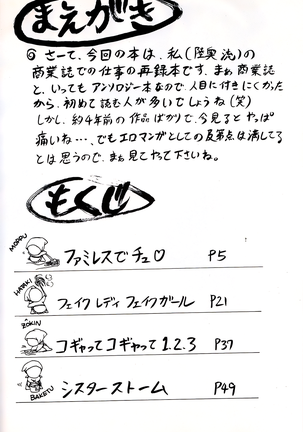 まえがき
◎ さーて、今回の本は、私(陸奥流)の
商業誌での仕事の再録本です、まぁ商業誌
と、いってもアンソロジー本なので、人目に付きにくかった
から、初めて読む人が多いでしょうね(笑)
しかし、約4年前の作品ばかりで、今見るとやっぱ
痛いね…、でもエロマンガとしての及第点は満してる
とは思うので、まぁ見てやって下さいね。
もくじ
MOPPU
ファミレスでチュ♡ P5
HATAKI
フェイクレディフェイクガール P21
ZOKIN
コギャってコギャって1.2.3 P37
BAKETU
シスターストーム P49